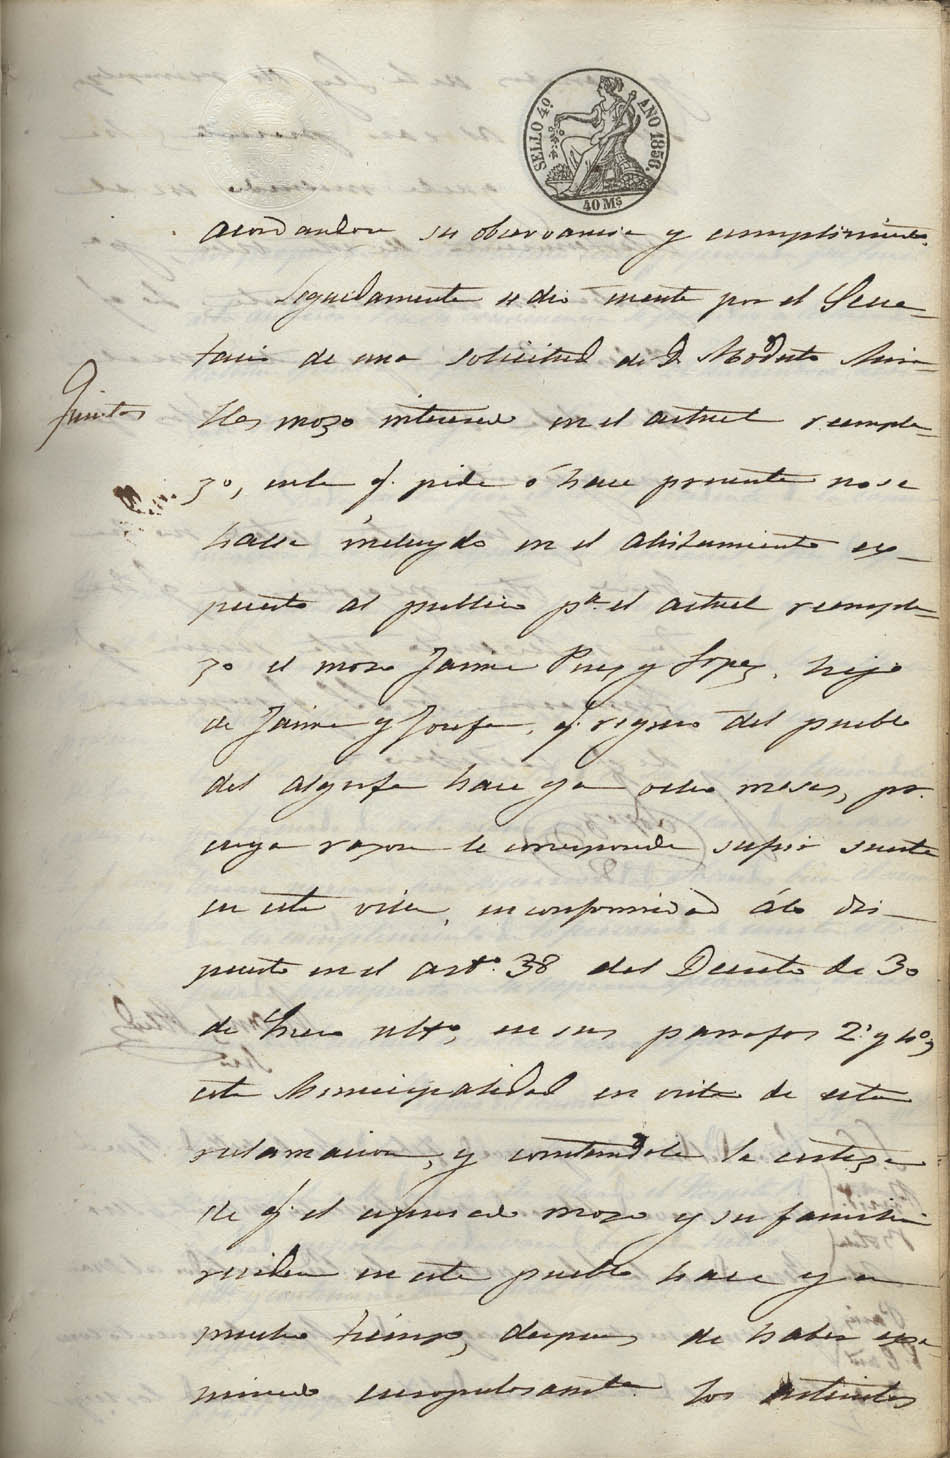 SELLO 4º. AÑO 1856.
40 Ms
acordandose su observancia y cumplimiento.
Seguidamente se dio cuenta por el Secre-
tario de una solicitud de D. Modesto Mira-
Quintas
lles mozo interesado en el actual reempla-
zo, en la q. pide ó hace presente no se
halla incluydo en el alistamiento es-
puesto al publico pª el actual reempla-
zo el mozo Jaime Puig y Lopez, hijo
de Jaime y Josefa, q. regreso del pueblo
del algorfa hace ya ocho meses, por
cuya razon le corresponde sufrir suerte
en esta villa, en conformidad á lo dis-
puesto en el artº. 38 del Decreto de 30
de Enero ultº, en sus parrafos 2º y 4º,
esta Municipalidad en vista de esta
reclamacion, y constandole la certeza
de q. el espresado mozo y su familia
residen en este pueblo hace ya
mucho tiempo, despues de haber exa-
minado escrupulosamte los articulos